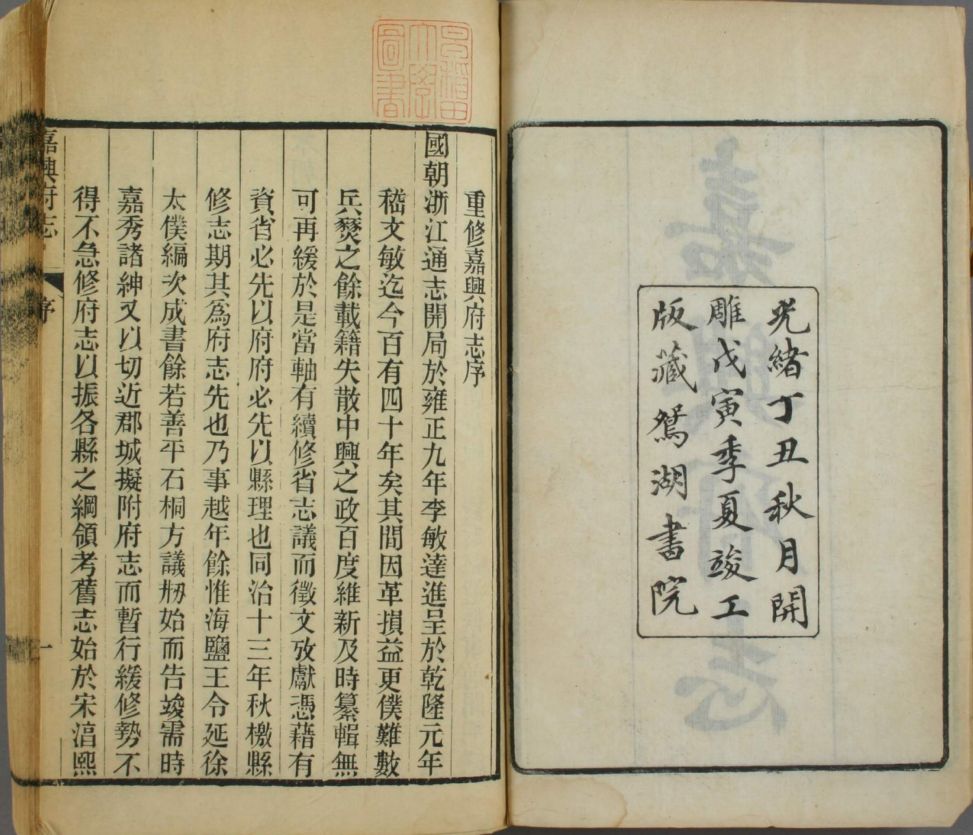 光緒丁丑秋月開
雕戊寅季夏竣工
版藏鴛湖書院
早稲田
大學
圖書
重修嘉興府志序
國朝浙江通志開局於雍正九年李敏達進呈於乾隆元年
嵇文敏迄今百有四十年矣其間因革損益更僕難數
兵燹之餘載籍失散中興之政百度維新及時纂輯無
可再緩於是當軸有續修省志議而徵文攷獻憑藉有
資省必先以府府必先以縣理也同治十三年秋檄縣
修志期其爲府志先也乃事越年餘惟海鹽王令延徐
太僕編次成書餘若善平石桐方議刱始而告竣需時
嘉秀諸紳又以切近郡城擬附府志而暫行緩修勢不
得不急修府志以振各縣之綱領考舊志始於宋湻熙
嘉興府志
序
一
嘉興府志